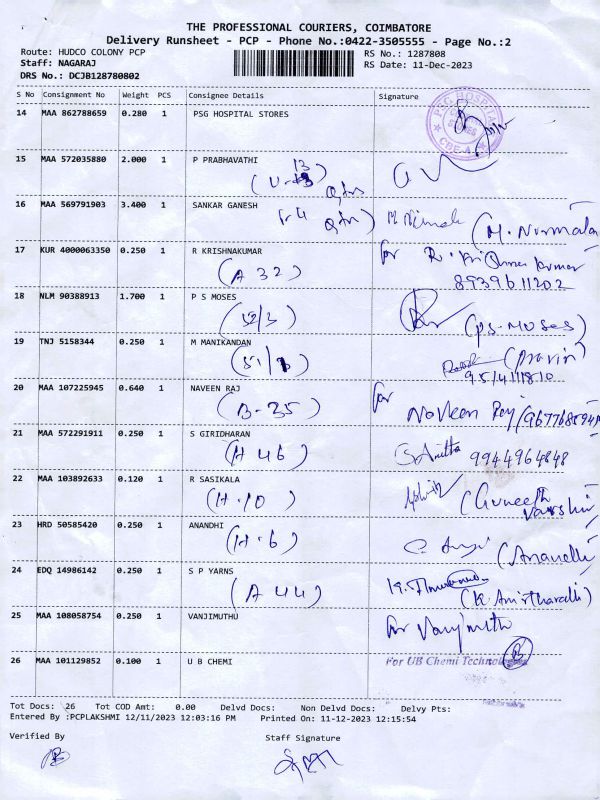 THE PROFESSIONAL COURIERS, COIMBATORE
Delivery Runsheet - PCP - Phone No.:0422-3505555 - Page No.:2
Route: HUDCO COLONY PCP RS No.: 1287808
Staff: NAGARAJ RS Date: 11-Dec-2023
DRS No.: DCJB128780802
S No Consignment No Weight PCS Consignee Details Signature
14 MAA 862788659 0.280 1 PSG HOSPITAL STORES
PSG HOSPITAL
CBE-4
15 MAA 572035880 2.000 1 P PRABHAVATHI
Qtrs
16 MAA 569791903 3.400 1 SANKAR GANESH
Qtrs) (M. Nirmala
17 KUR 4000063350 0.250 1 R KRISHNAKUMAR for R. Krishna Kumar
(A 32) 8939611202
18 NLM 90388913 1.700 1 P S MOSES
(PS. MOSES)
19 TNJ 5158344 0.250 1 M MANIKANDAN
(Pravin)
9514111810
20 MAA 107225945 0.640 1 NAVEEN RAJ for
(B-35) Naveen Raj
21 MAA 572291911 0.250 1 S GIRIDHARAN
(H 46) 9944964848
22 MAA 103892633 0.120 1 R SASIKALA
(H-10)
23 HRD 50585420 0.250 1 ANANDHI
(H-6) (Anandhi
24 EDQ 14986142 0.250 1 S P YARNS
(A 44)
25 MAA 108058754 0.250 1 VANJIMUTHU
for Vanjimuthu
26 MAA 101129852 0.100 1 U B CHEMI For UB Chemi Technologies
Tot Docs: 26 Tot COD Amt: 0.00 Delvd Docs: Non Delvd Docs: Delvy Pts:
Entered By :PCPLAKSHMI 12/11/2023 12:03:16 PM Printed On: 11-12-2023 12:15:54
Verified By Staff Signature